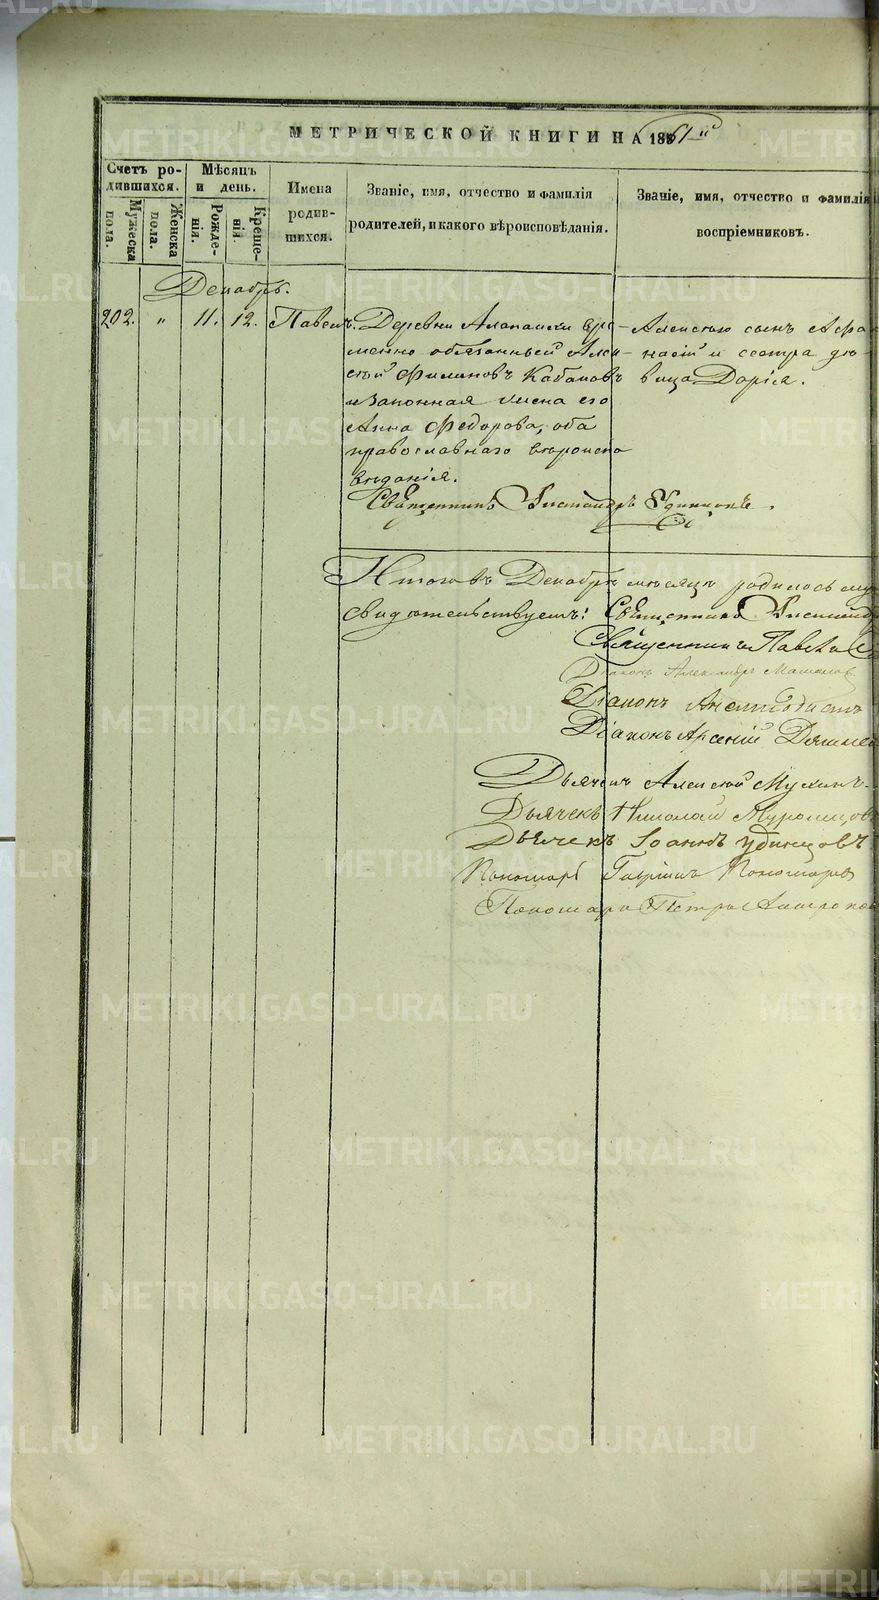 МЕТРИЧЕСКОЙ КНИГИ НА 1861й
Счетъ родившихся.
Мужеска пола.
Женска пола.
Мѣсяцъ и день.
Рожденія.
Крещенія.
Имена родившихся.
Званіе, имя, отчество и фамилія
родителей, и какого вѣроисповѣданія.
Званіе, имя, отчество и фамилія
воспріемниковъ.
Декабрь.
202. " 11. 12. Павелъ.
Деревни Алапаихи вре-
менно обязанный Алек-
сѣй Филиповъ Кабаковъ
и законная жена его
Анна Федорова, оба
православнаго вѣроиспо
вѣданія.
Алексѣю сынъ Афа-
насій и сестра дѣ-
вица Дарія.
Священникъ Удинцовъ.
Итого въ Декабрѣ мѣсяцѣ родилось му
свидѣтельствуемъ: Священникъ
Священникъ Павелъ
Діаконъ Александръ
Діаконъ
Діаконъ Арсеній
Дьячекъ Алексѣй Мухинъ
Дьячекъ Николай
Дьячекъ Іоаннъ Удинцовъ
Пономарь Гавріилъ Пономаревъ
Пономарь Петръ
METRIKI.GASO-URAL.RU